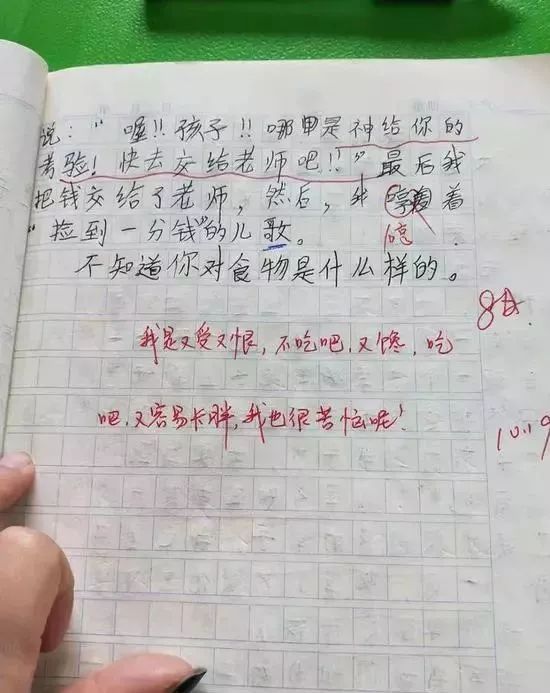 说："喔!!孩子!!哪甲是神给你的
考验!快去交给老师吧!!"最后我
把钱交给了老师，然后，我着
"捡到一分钱"的儿歌。
不知道你对食物是什么样的。
我是又爱又恨,不吃吧,又馋,吃
吧,又容易长胖,我也很苦恼呢!
10.19